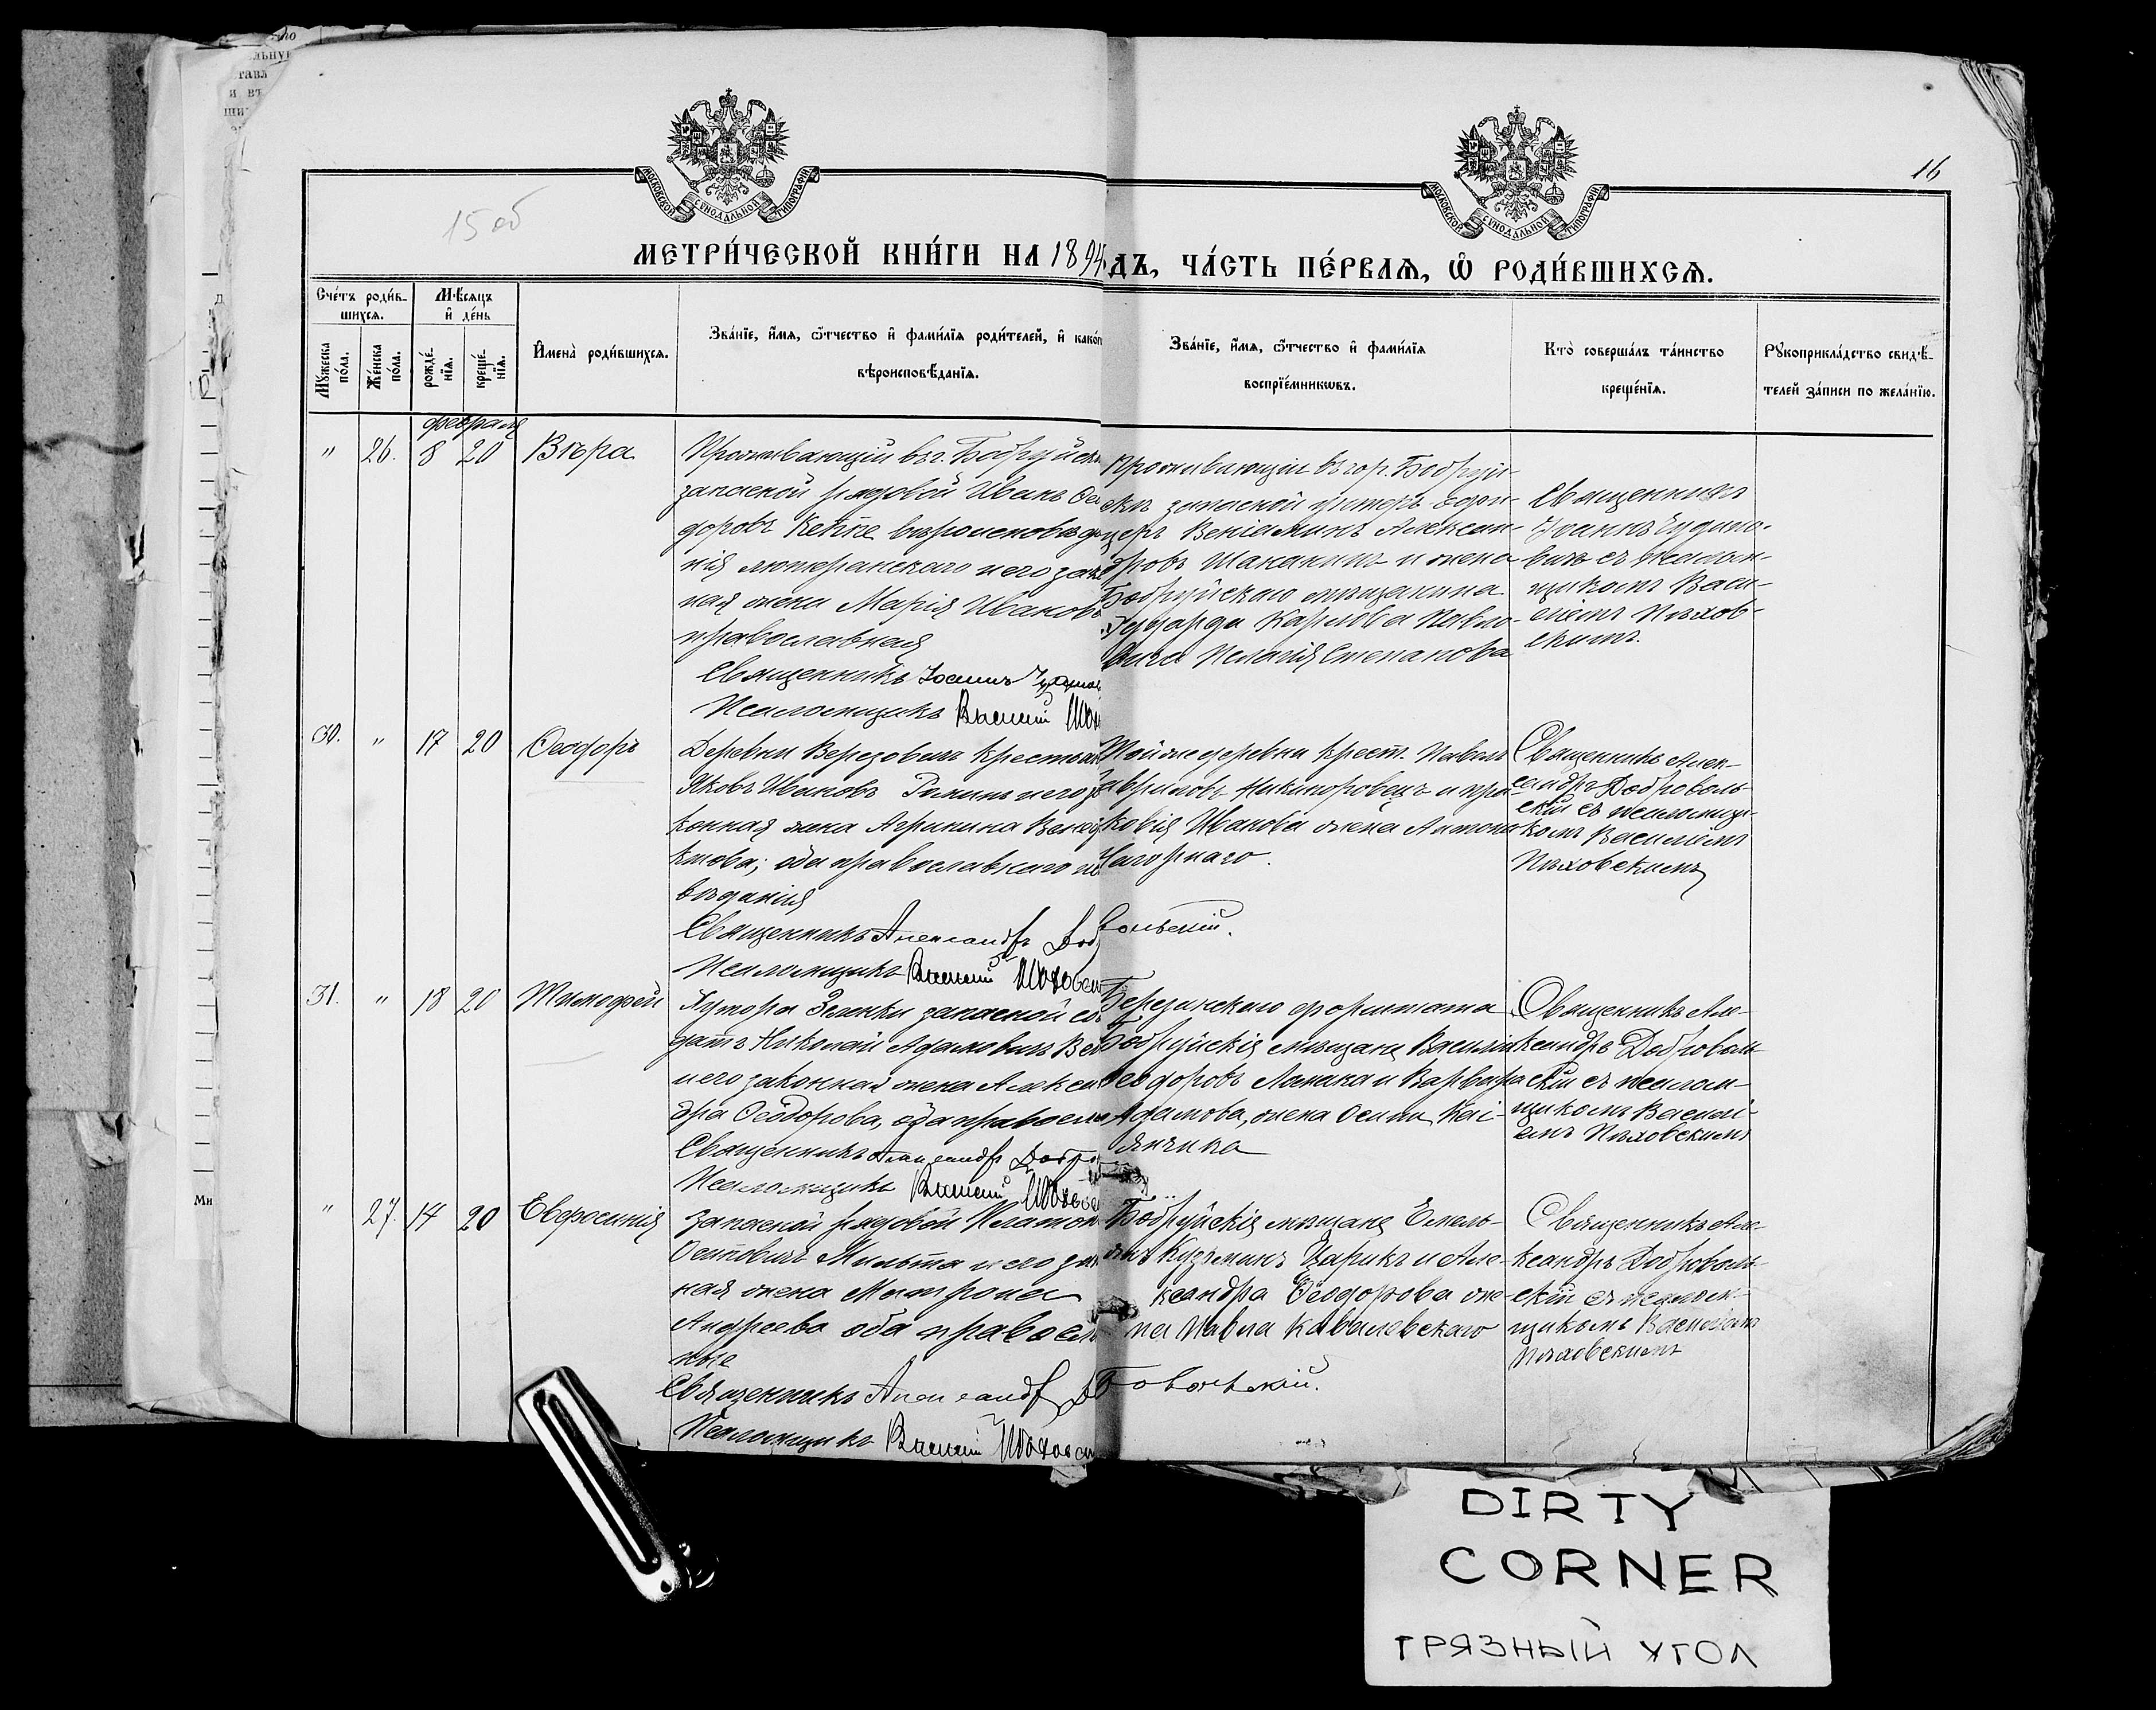 15 об
16
МОСКОВСКОЙ СѴНОДАЛЬНОЙ ТИПОГРАФІИ
МОСКОВСКОЙ СѴНОДАЛЬНОЙ ТИПОГРАФІИ
МЕТРИ́ЧЕСКОЙ КНИ́ГИ НА 1894
ДЪ, ЧА́СТЬ ПЕ́РВАѦ, Ѡ҆ РОДИ́ВШИХСѦ.
Сче́тъ роди́в-
шихсѧ.
Мѣ́сѧцъ
и҆ де́нь
Мꙋ́жеска по́ла.
Же́нска по́ла.
рожде́-нїѧ.
креще́-нїѧ.
И҆мена̀ роди́вшихсѧ.
Зва́нїе, и҆́мѧ, ѻ҆́тчество и҆ фами́лїѧ роди́телей, и҆ како́г
вѣроисповѣ́данїѧ.
Зва́нїе, и҆́мѧ, ѻ҆́тчество и҆ фами́лїѧ
воспрїе́мникѡвъ.
Кто̀ соверша́лъ та́инство
креще́нїѧ.
Рꙋкоприкла́дство свидѣ́-
телей за́писи по жела́нїю.
февраля
" 26. 8 20 Вѣра
Проживающій въ г. Бобруйск
запасной рядовой Иванъ Ѳео
доровъ вѣроисповѣда
нія лютеранскаго и его закон
ная жена Марія Иванов
православная
Священникъ Іоаннъ
Псаломщикъ Василій
Проживающіе въ гор. Бобруй-
скѣ запасной унтеръ-офи-
церъ Веніаминъ Алексан-
дровъ и жена
Бобруйскаго мѣщанина
Эдуарда Карлова
Пелагія Степанова
Священникъ
Іоаннъ
вичъ съ псалом-
щикомъ Васи-
ліемъ Пѣхов-
скимъ.
30. " 17 20 Ѳеодоръ
Деревни крестьян
Яковъ Ивановъ и его за
конная жена Агрипина
кимова; оба православнаго испо
вѣданія
Священникъ Александръ Доб
вольскій.
Псаломщикъ Василій
Той же деревни крест. Павелъ
Гавриловъ Никипоровецъ и Прас
ковія Иванова жена Антона
Нагорнаго.
Священникъ Алек-
сандръ Доброволь-
скій съ псаломщи-
комъ Василіемъ
Пѣховскимъ
31. " 18 20 Тимофей
Хутора запасной сол
датъ Николай Адамовичъ
и его законная жена Алексан
дра Ѳеодорова, оба правосл
Священникъ Александръ Добро
Псаломщикъ Василій
Березинскаго форштата
Бобруйскія мѣщане Василій
Ѳеодоровъ и Варвара
Адамова, жена Осипа
Священникъ Але-
ксандръ Доброволь-
скій съ псалом-
щикомъ Василі-
емъ Пѣховскимъ
" 27. 14 20 Евфросинія
Запасной рядовой Платонъ
Осиповичъ и его закон
ная жена Матрона
Андреева оба православ
ные
Священникъ Александръ До
бровольскій.
Псаломщикъ Василій
Бобруйскія мѣщане Емель-
янъ Кузьминъ Царикъ и Але-
ксандра Ѳеодорова же-
на Павла Кавалевскаго
Священникъ Але-
ксандръ Доброволь-
скій съ псалом-
щикомъ Василіемъ
Пѣховскимъ
DIRTY
CORNER
ГРЯЗНЫЙ УГОЛ